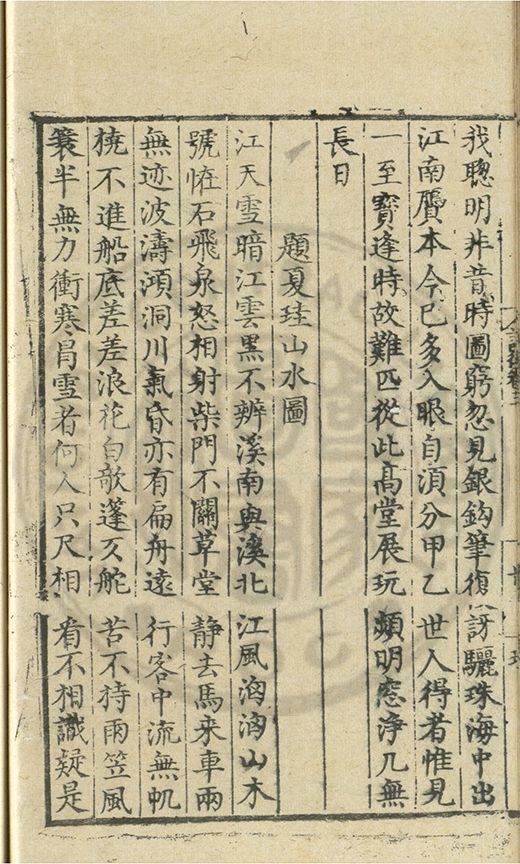 我聰明非昔時圖窮忽見銀鈎筆復訝驪珠海中出
江南贗本今已多入眼自湏分甲乙世人得者惟見
一至寳逢時故難匹從此高堂展玩頻明窓浄几無
長日
題夏珪山水圖
江天雪暗江雲黒不辨溪南與溪北江風洶洶山木
號恠石飛泉怒相射柴門不關草堂静去馬来車兩
無迹波濤澒洞川氣昏亦有扁舟逺行客中流無帆
橈不進船底差差浪花白欹蓬欠舵苦不持雨笠風
蓑半無力衝寒冒雪者何人只尺相看不相識疑是